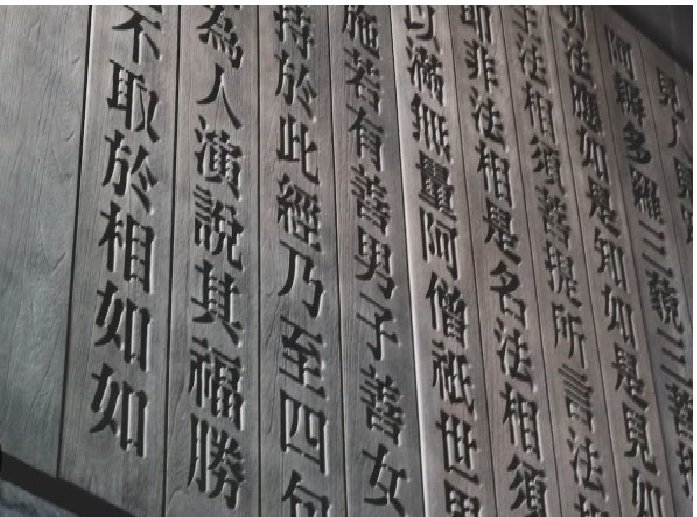 見人見
阿耨多羅三藐三菩
切法應如是知如是見如
生法相須菩提所言法
即非法相是名法相須
以滿無量阿僧祇世界
施若有善男子善女
持於此經乃至四句
為人演說其福勝
不取於相如如